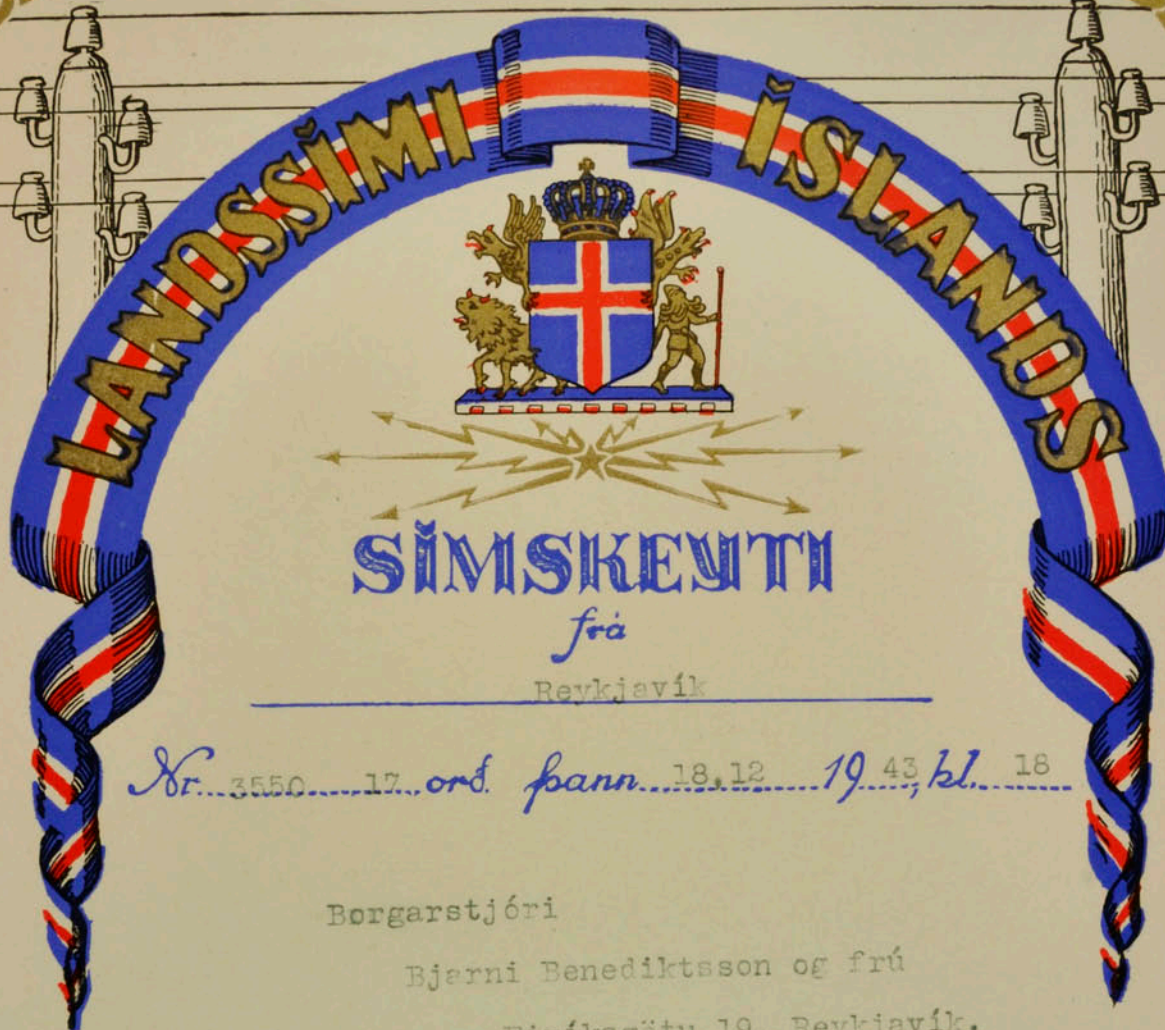 LANDSSÍMI ÍSLANDS
SÍMSKEYTI
frá
Reykjavík
Nr. 3550 17 orð. þann 18.12 1943, kl. 18
Borgarstjóri
Bjarni Benediktsson og frú
19 Reykjavík.